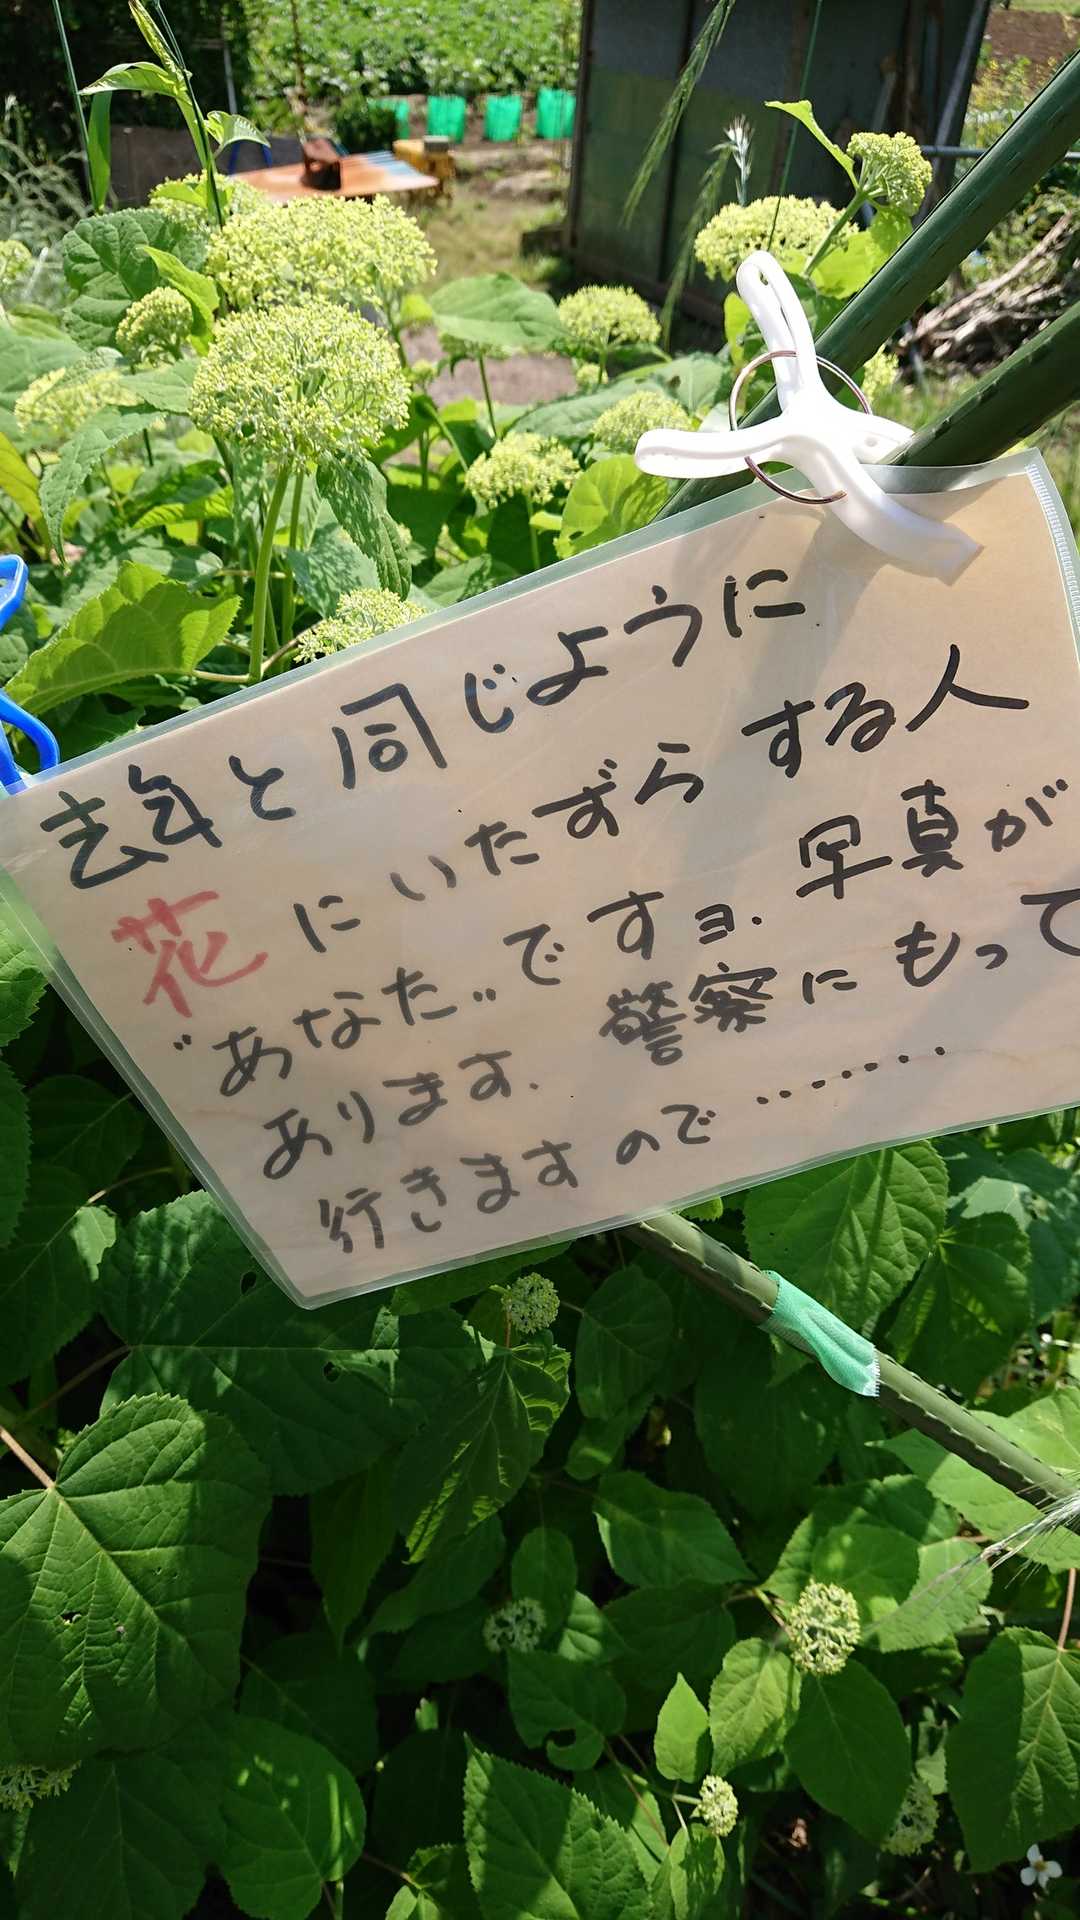 去年と同じように
花にいたずらする人
"あなた"ですョ.写真が
あります.警察にもって
行きますので………